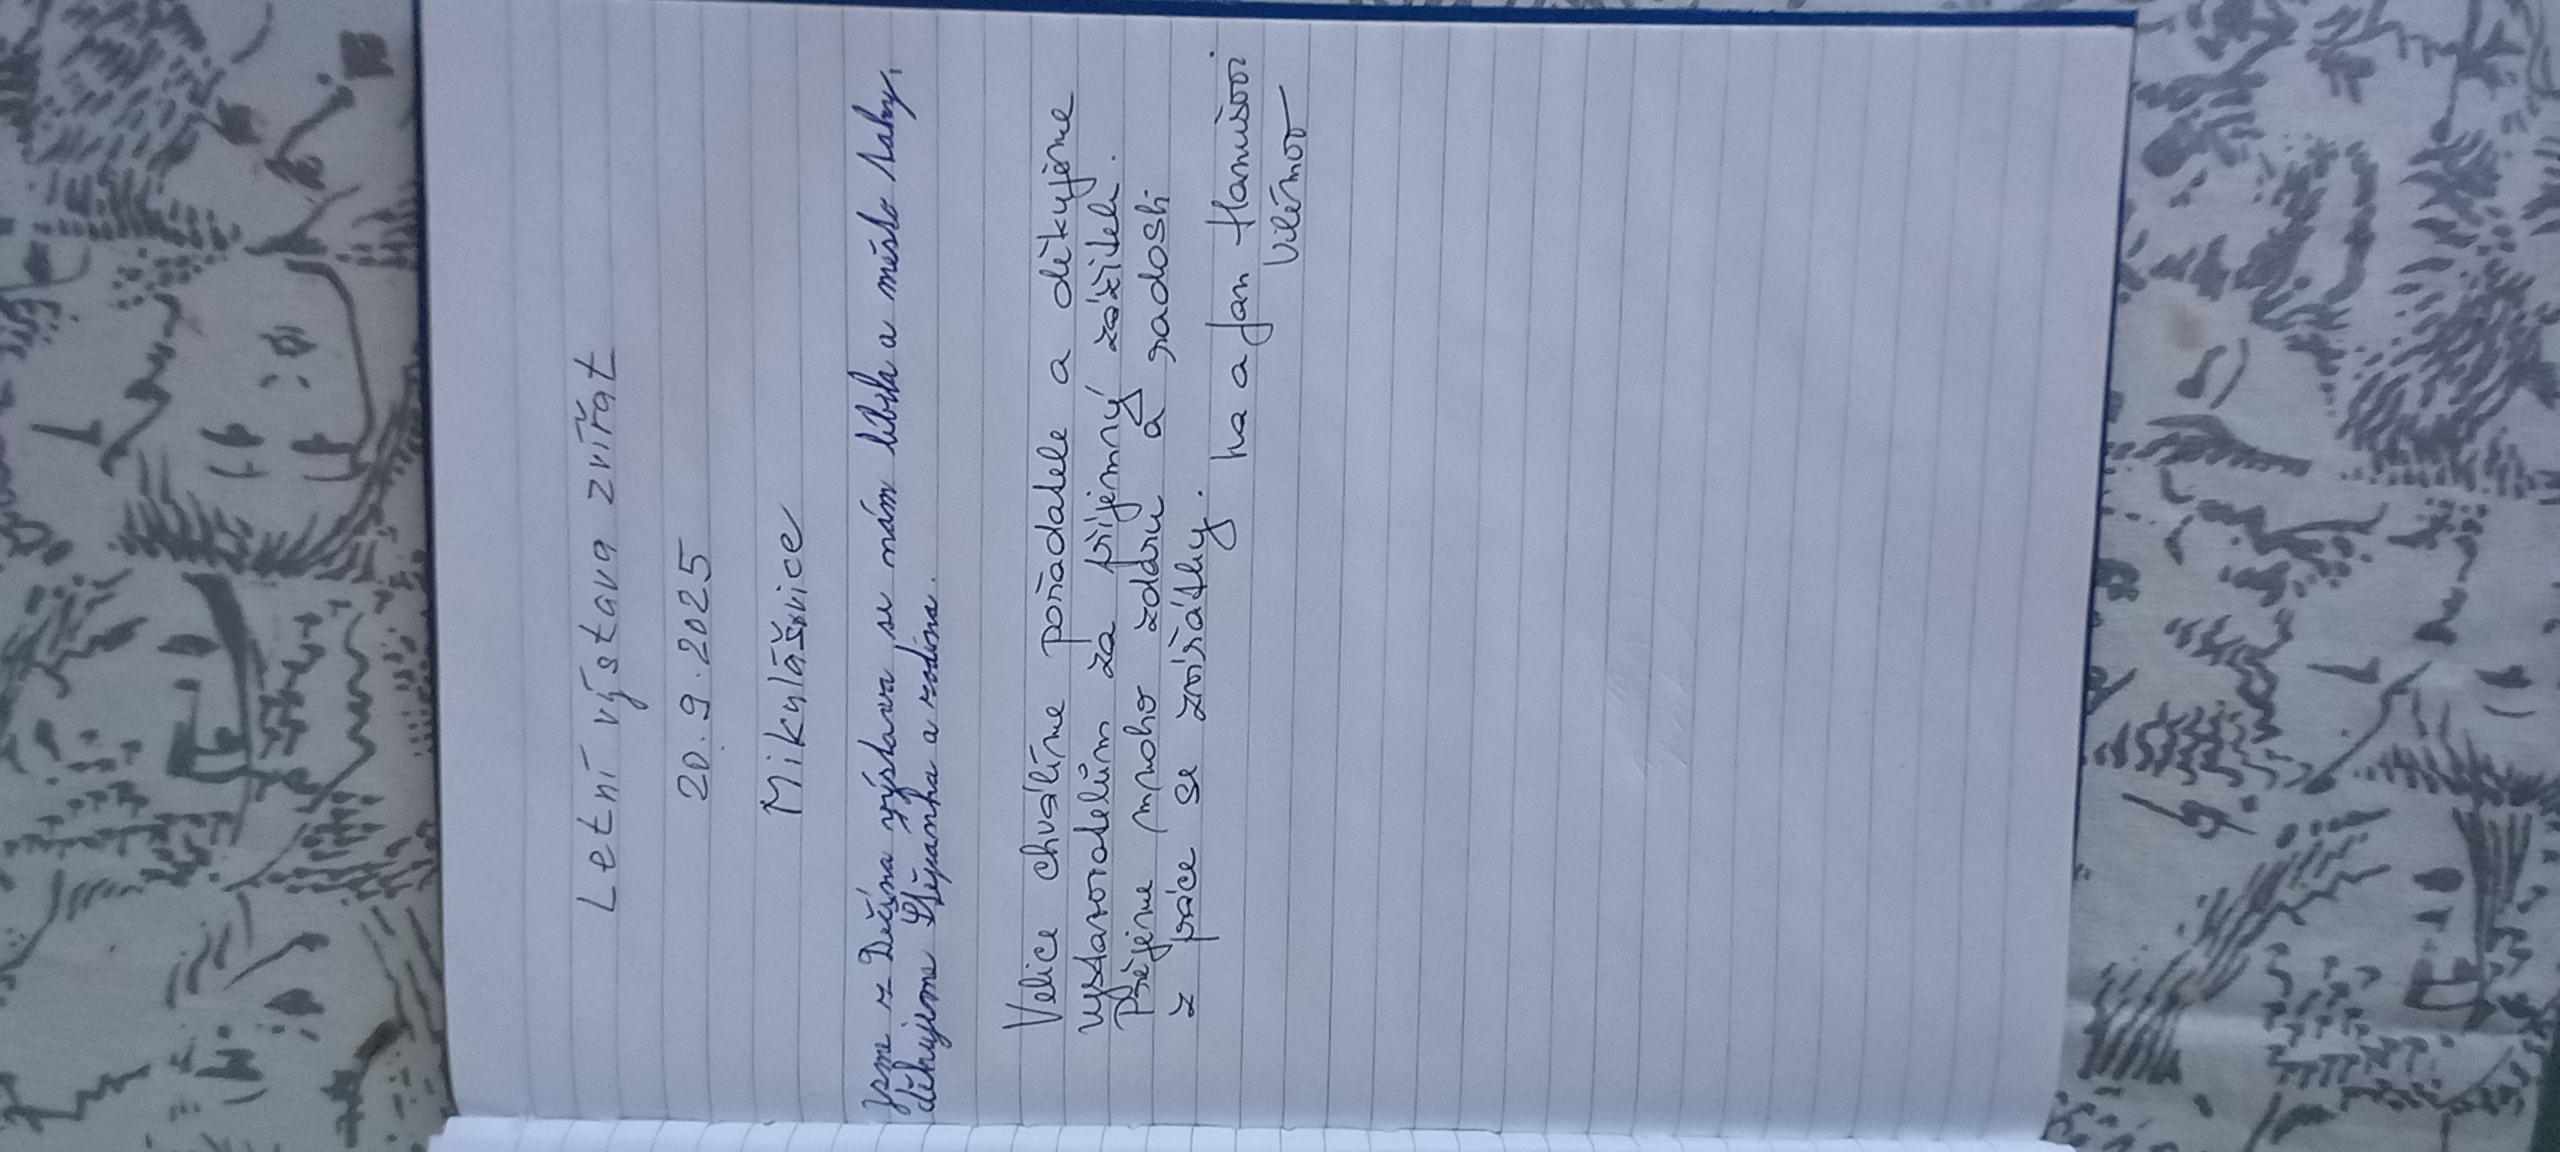 Letní výstava zvířat
20.9.2025
Mikulášovice
Jsme z Děčína výstava se nám líbila a město taky,
děkujeme Štěpánka a rodina.
Velice chválíme pořadatele a děkujeme
vystavovatelům za příjemný zážitek.
Přejeme mnoho zdaru a radosti
z práce se zvířátky.
Iva a Jan Hanušovi
Vilémov